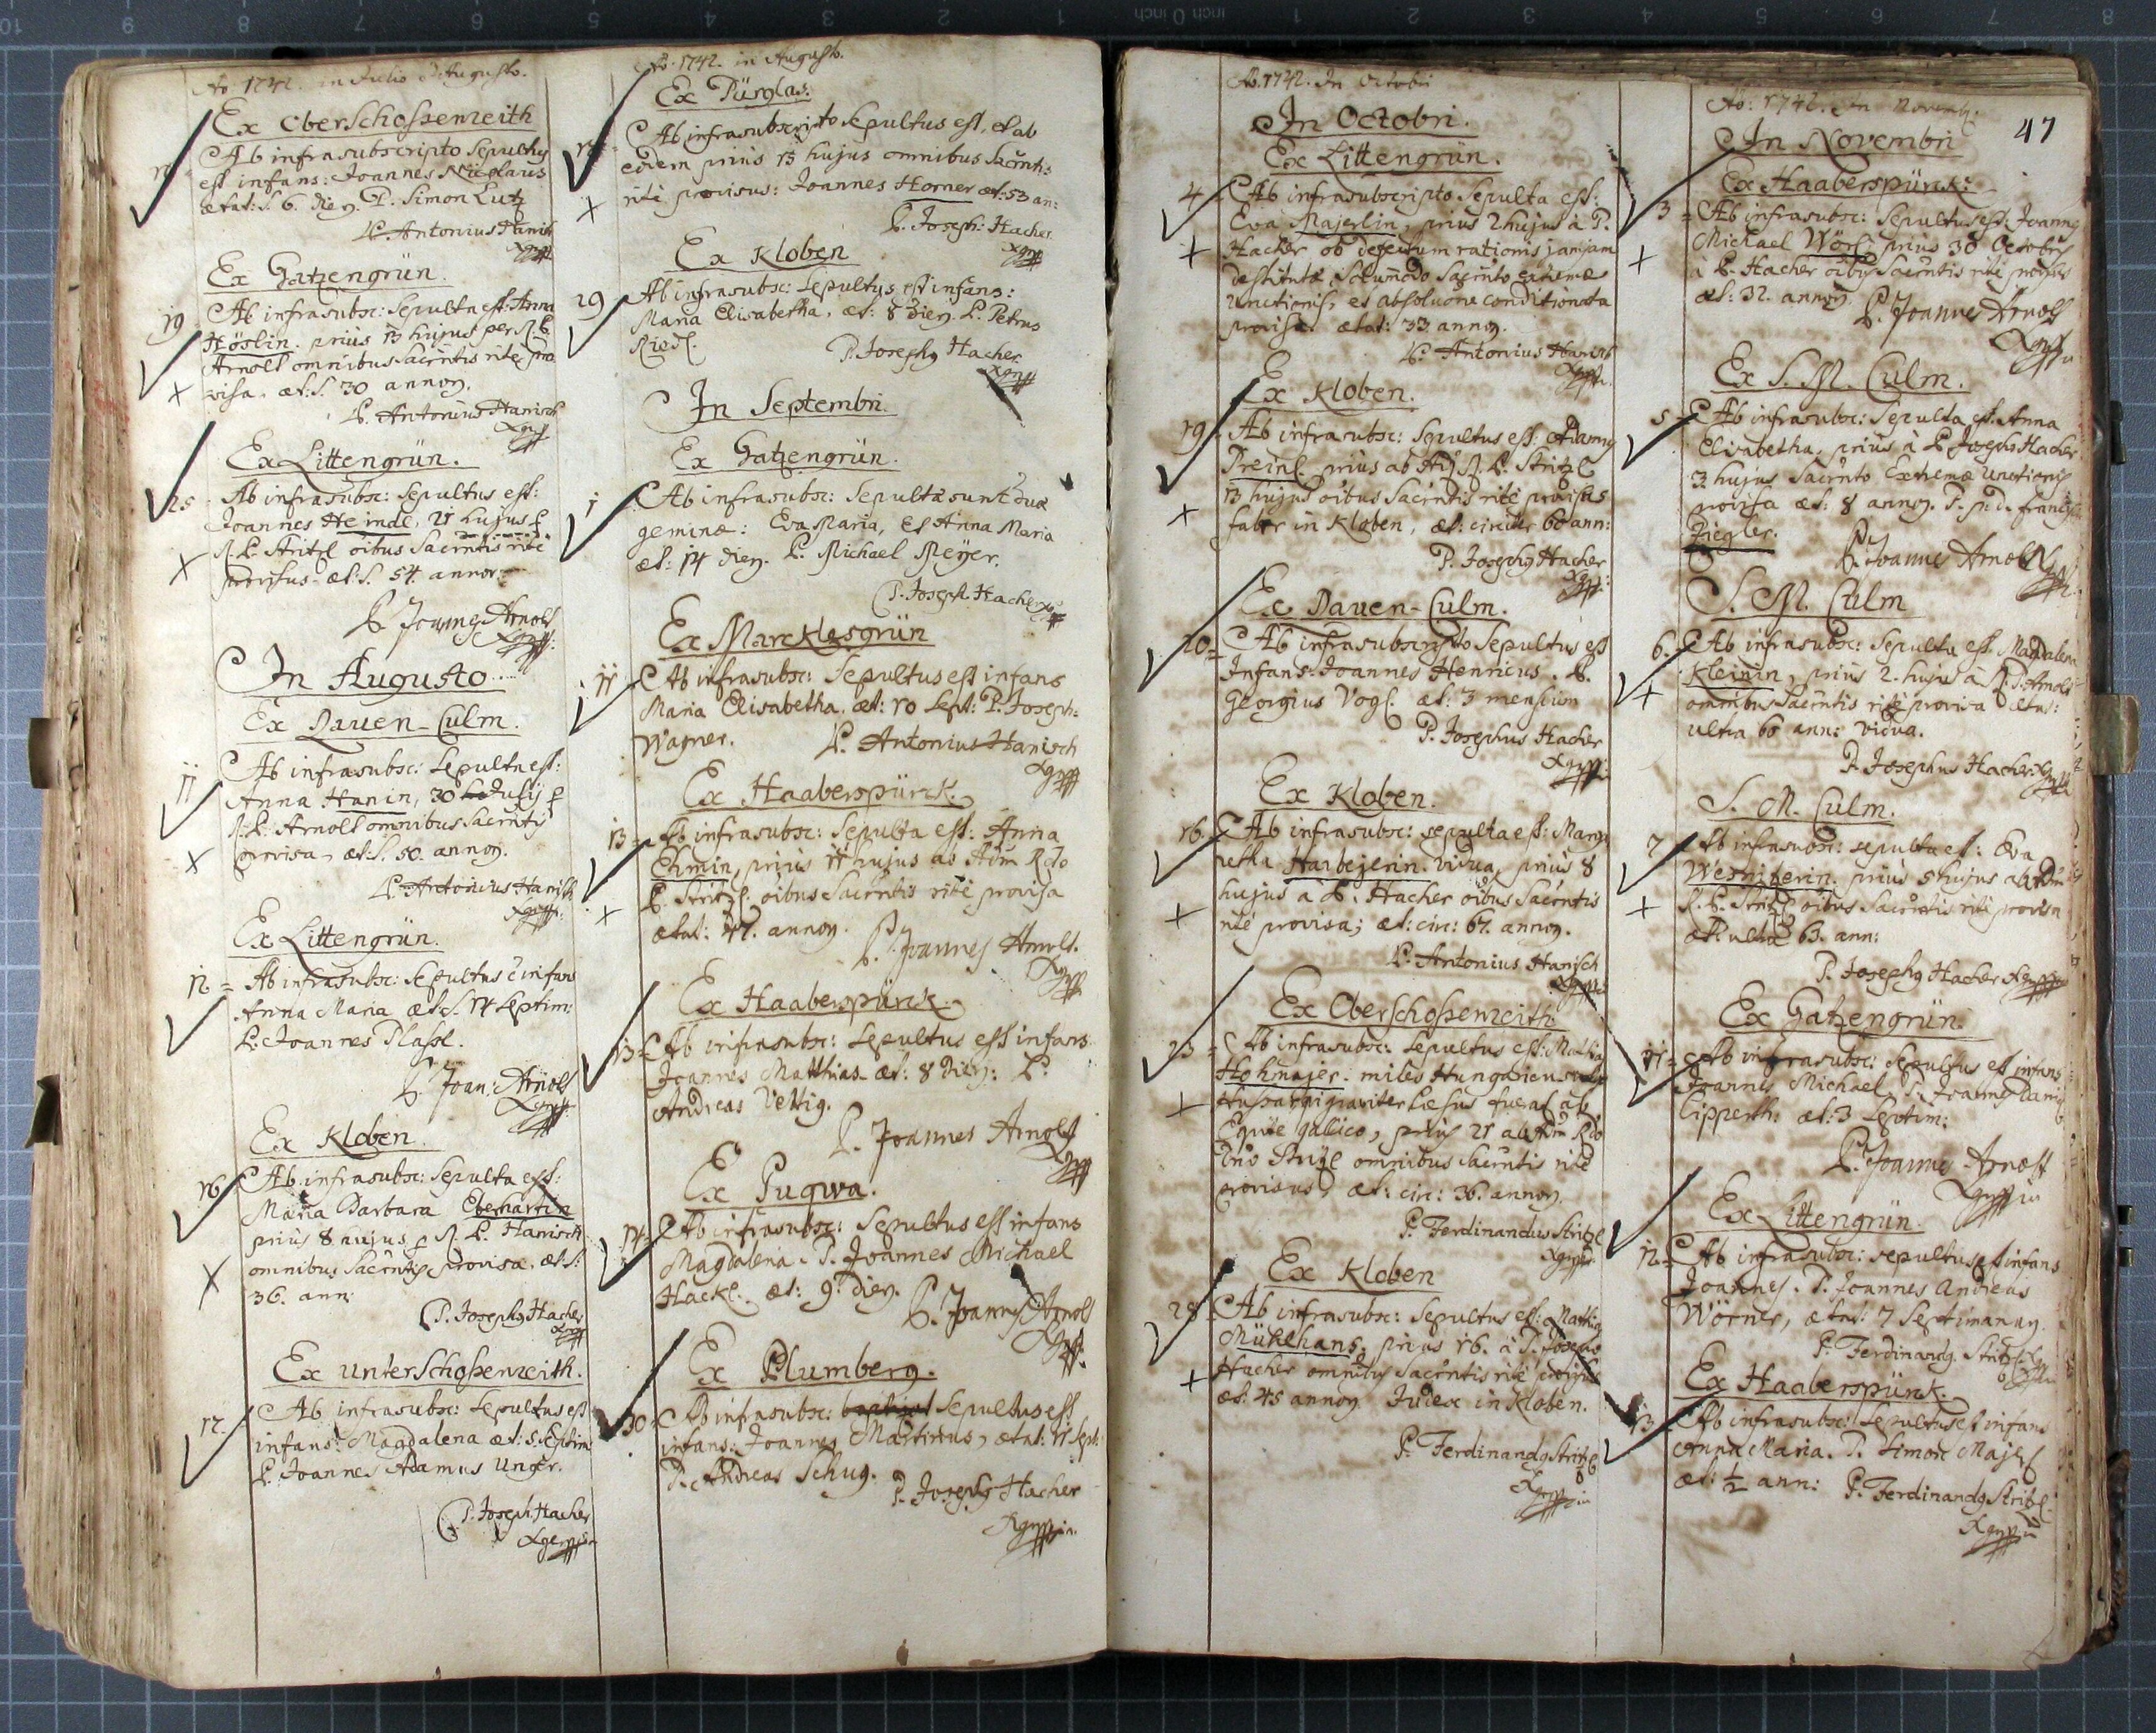 Ao 1742. in Julio & Augusto.
Ex Oberschossenreith
Ab infrasubscripto Sepultus
est infans: Joannes Nicolaus
ætat: S. 6. dieru. P. Simon Lutz
P. Antonius Hanisch
Ex Gatzengrün.
19 Ab infrasubsc: Sepulta est: Anna
Höslin. priùs 13 hujus per R. P.
Arnolt omnibus Sacrntis ritè pro
visa. æt: S. 30 annoru.
P. Antonius Hanisch
Ex Littengrün.
25 Ab infrasubsc: Sepultus est:
Joannes Heindl, 21 hujus p
R. P. Stritzl oibus Sacrntis ritè
provisus. æt: S. 54 annor:
P. Joannes Arnolt
In Augusto
Ex Dauen-Culm.
11 Ab infrasubsc: Sepulta est:
Anna Hanin, 30 Julij p
R. P. Arnolt omnibus Sacrntis
provisa, æt: S. 50. annoru.
P. Antonius Hanisch
Ex Littengrün.
12 = Ab infrasubsc: Sepultus ẽ infans
Anna Maria æt: S. 14 Septim:
P. Joannes Plassl.
P. Joan: Arnolt
Ex Kloben.
16 Ab infrasubsc: Sepulta est:
Maria Barbara Eberhartin
priùs 8 hujus p R. P. Hanisch
omnibus Sacrntis provisa. æt: S:
36. ann:
P. Josephus Hacher
Ex Unterschossenreith.
17. Ab infrasubsc: Sepultus est
infans: Magdalena æt: 5 Septim:
P. Joannes Adamus Unger.
P. Joseph: Hacher
Ao. 1742. in Augusto.
Ex Pürglas:
Ab infrasubscripto Sepultus est, et ab
eodem priùs 13 hujus omnibus Sacrnt:
ritè provisus: Joannes Horner æt: 53 an:
P. Joseph: Hacher
Ex Kloben
29 Ab infrasubsc: Sepultus est infans:
Maria Elisabetha, æt: 8 dieru. P. Petrus
Riedl.
P. Josephus Hacher
In Septembri.
Ex Gatzengrün.
1 Ab infrasubsc: Sepultæ sunt duæ
geminæ: Eva Maria, et Anna Maria
æt: 14 dieru. P. Michael Meyer.
P. Joseph. Hacher
Ex Marcklesgrün
11 Ab infrasubsc: Sepultus est infans
Maria Elisabetha. æt: 10 Sept: P. Joseph:
Wagner. P. Antonius Hanisch
Ex Haaberspürck.
13 = Ab infrasubsc: Sepulta est: Anna
Ehmin, priùs 11 hujus ab Adm Rdo
P. Stritzl oibus Sacrntis ritè provisa
ætat: 47. annoru. P. Joannes Arnolt.
Ex Haaberspürck.
13 = Ab infrasubsc: Sepultus est infans
Joannes Matthias æt: 8 dieru: P.
Andreas Vettig.
P. Joannes Arnolt
Ex Pugwa.
14 Ab infrasubsc: Sepultus est infans
Magdalena. P. Joannes Michael
Hackl. æt: 9. dieru.
P. Joannes Arnolt
Ex Plumberg.
30 = Ab infrasubsc: Sepultus est
infans: Joannes Martinus, ætat: 11 Sept:
P. Andreas Schug. P. Josephus Hacher
Ao. 1742. In Octobri
In Octobri.
Ex Littengrün.
4 = Ab infrasubscripto Sepulta est:
Eva Majerlin, priùs 2 hujus à P.
Hacher ob defectum rationis jamjam
destituta, Solummodo Sacrnto extremæ
unctionis, et absoluone conditionata
provisa. ætat: 33 annoru.
P. Antonius Hanisch
Ex Kloben.
19 = Ab infrasubsc: Sepultus est: Adamus
Preinl priùs ab Ad: R. P. Stritzl
13 hujus oibus Sacrntis ritè provisus
faber in Kloben, æt: circiter 60 ann:
P. Josephus Hacher
Ex Dauen-Culm.
20 = Ab infrasubscripto Sepultus est
Infans Joannes Henricus. P.
Georgius Vogl. æt: 3 mensium
P. Josephus Hacher
Ex Kloben.
16. Ab infrasubsc: sepulta est: Marga
retha Harbejerin. vidua, priùs 8
hujus à P. Hacher oibus Sacrntis
ritè provisa; æt: circ: 67. annoru.
P. Antonius Hanisch
Ex Oberschossenreith
23 = Ab infrasubsc: Sepultus est: Mathias
Hohmajer. miles Hungaricus
graviter læsus fuerat ab
Equite gallico, priùs 21 ab Adm Rdo
Dno Stritzl omnibus Sacrntis ritè
provisus, æt: circ: 36. annoru.
P. Ferdinandus Stritzl
Ex Kloben
28 Ab infrasubsc: Sepultus est: Mathias
Mühlhans, priùs 16. à P. Josepho
Hacher omnibus Sacrntis ritè provisus
æt: 45 annoru Judex in Kloben.
P. Ferdinandus Stritzl
Ao: 1742. In Novemb:
47
In Novembri
Ex Haaberspürck:
3 = Ab infrasubsc: Sepultus est: Joannes
Michael Wörl priùs 30 Octobris
à P. Hacher oibus Sacrntis ritè provisus
æt: 32. annoru. P. Joannes Arnolt
Ex S. M. Culm.
5 = Ab infrasubsc: Sepulta est. Anna
Elisabetha, priùs à P. Josepho Hacher
3 hujus Sacrnto Extremæ Unctionis
provisa æt: 8 annoru. P.
Ziegler. P. Joannes Arnolt
S. M. Culm
6. Ab infrasubsc: Sepulta est Magdalena
Kleinin, priùs 2. hujus à R. P. Arnolt
omnibus Sacrntis ritè provisa ætat:
ultra 60 ann: vidua.
P. Josephus Hacher
S. M. Culm.
7 = Ab infrasubsc: sepulta est: Eva
priùs 5 hujus ab Adm
R. P. Stritzl oibus Sacrntis ritè provisa
æt: ultra 63. ann:
P. Josephus Hacher
Ex Gatzengrün.
11 = Ab infrasubsc: Sepultus est infans
Joannes Michael, P. Joannes
Lipperth: æt: 3 Septim:
P. Joannes Arnolt
Ex Littengrün.
12 = Ab infrasubsc: sepultus est infans
Joannes. P. Joannes Andreas
Wörner, ætat: 7 Septimanaru.
P. Ferdinandus Stritzl
Ex Haaberspürck.
13 = Ab infrasubsc: Sepultus est infans
Anna Maria. P. Simon Majerl
æt: ½ ann: P. Ferdinandus Stritzl